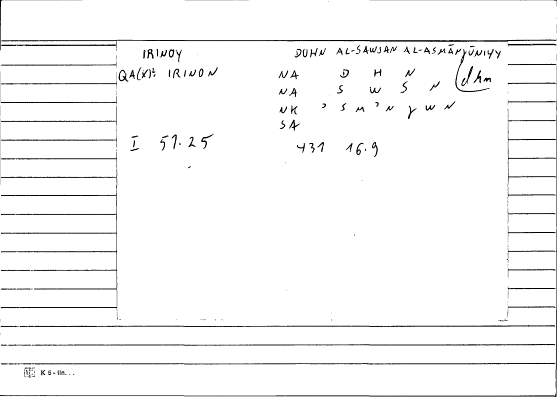 IRINOY DUHN AL-SAWSAN AL-ASMĀNǦŪNIYY
QA(X): IRINON NA D H N dhn
NA S W S N
NK ʾ S M ʾ N ǧ W N
SA
I 51.25 431 16.9
K 5 - lin. . .